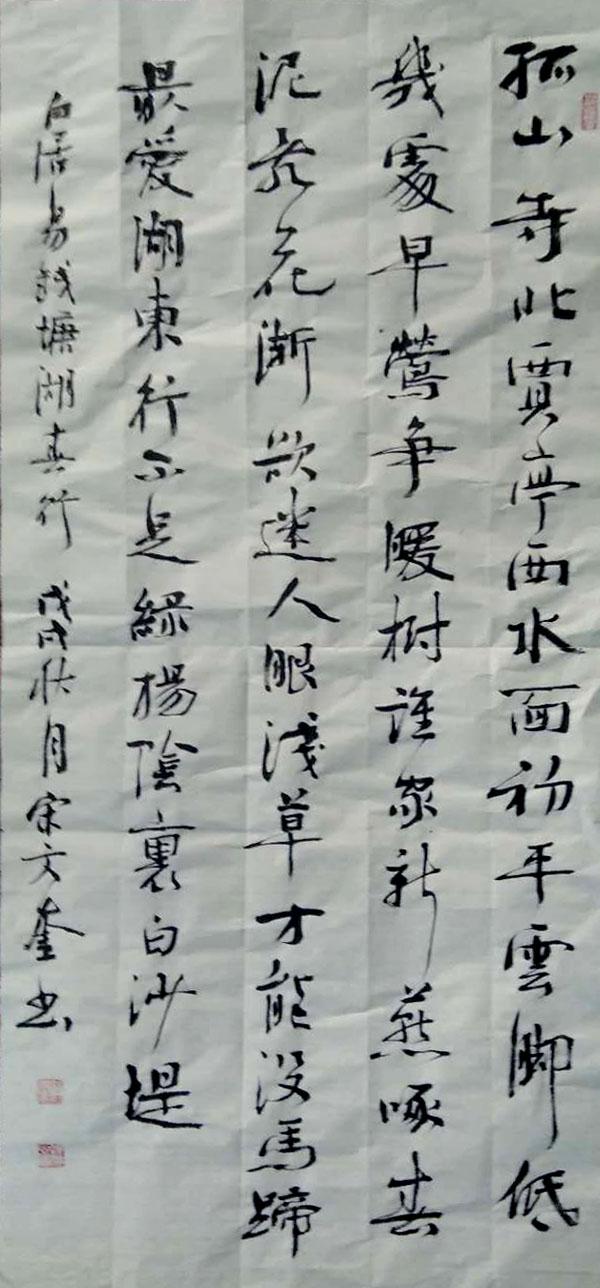 孤山寺北賈亭西水面初平雲脚低
幾處早鶯爭暖樹誰家新燕啄春
泥亂花漸欲迷人眼淺草才能沒馬蹄
最愛湖東行不足綠楊陰裏白沙堤
白居易錢塘湖春行 戊戌秋月宋文奎書